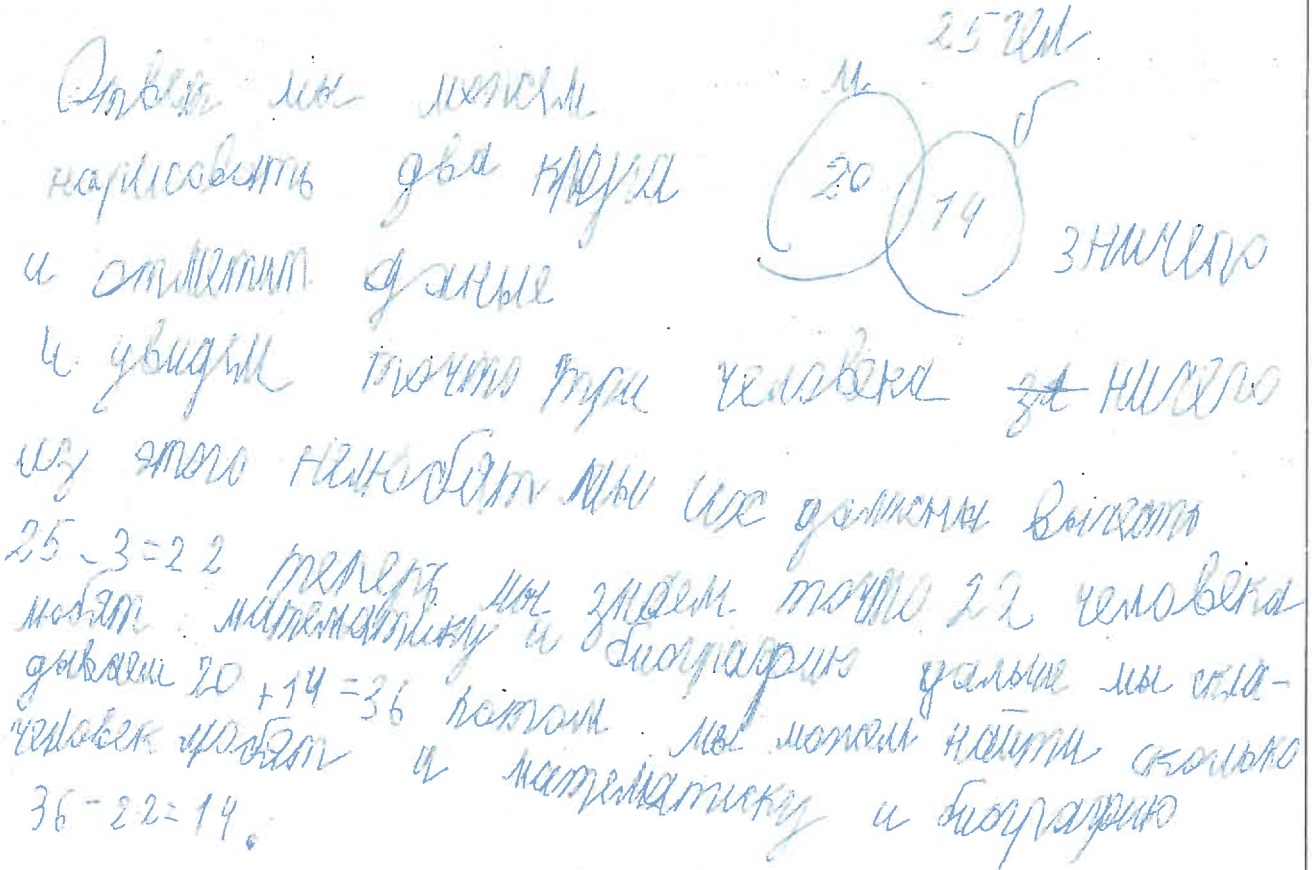 25 чел
Ответ мы можем
м
б
нарисовать два круга
20
14
3 ничего
и отметит даные
и увидем точто три человека за ничего
из этого нелюбят мы их должны вычесть
25-3=22 теперь мы знаем точто 22 человека
любят математику и биографию дальше мы скла-
дываем 20+14=36 потом мы можем найти сколько
человек любят и математику и биографию
36-22=14.